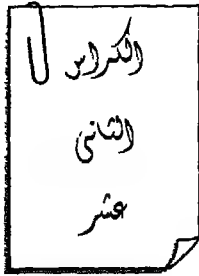 الكراس
الثانى
عشر